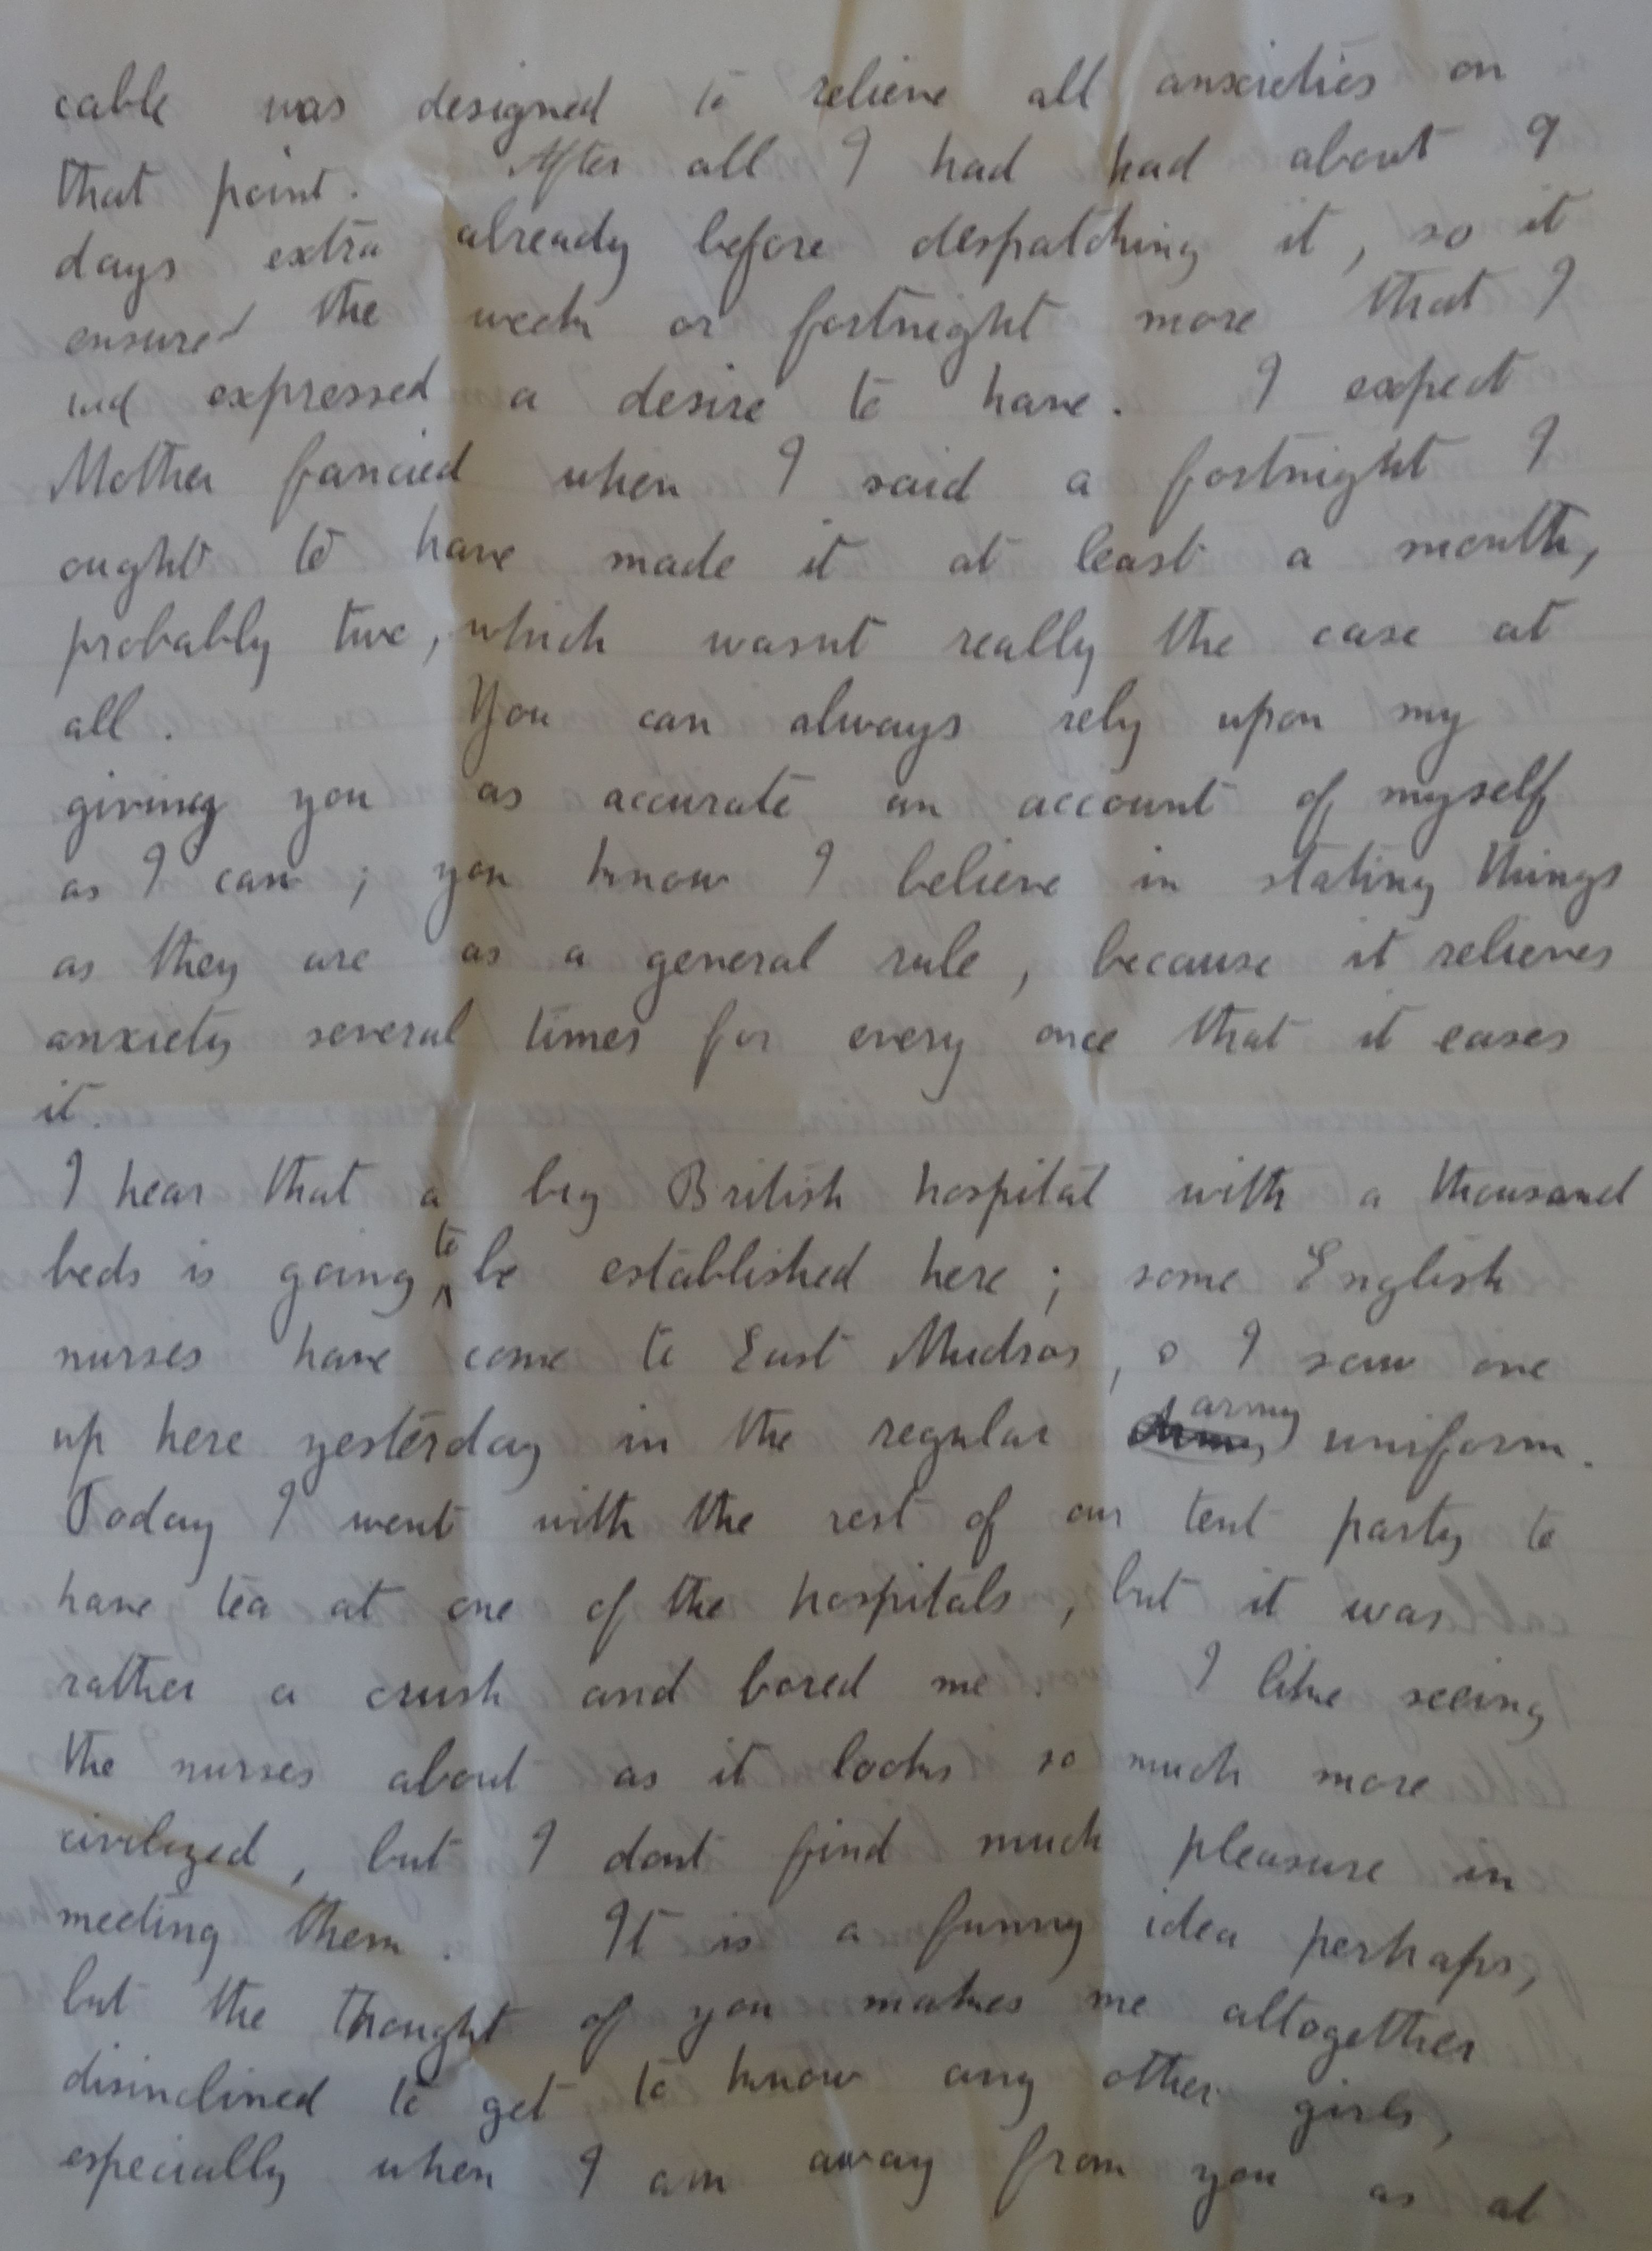 cable was designed to relieve all anxieties on
that point. After all I had had about 9
days extra already before despatching it, so it
ensured the week or fortnight more that I
had expressed a desire to have. I expect
Mother fancied when I said a fortnight I
ought to have made it at least a month,
probably two, which wasnt really the case at
all. You can always rely upon my
giving you as accurate an account of myself
as I can; you know I believe in stating things
as they are as a general rule, because it relieves
anxiety several times for every once that it eases
it.
I hear that a big British hospital with a thousand
beds is going to be established here; some English
nurses have come to East Mudros, & I saw one
up here yesterday in the regular army uniform.
Today I went with the rest of our tent party to
have tea at one of the hospitals, but it was
rather a crush and bored me. I like seeing
the nurses about as it looks so much more
civilized, but I dont find much pleasure in
meeting them. It is a funny idea perhaps,
but the thought of you makes me altogether
disinclined to get to know any other girls,
especially when I am away from you as at